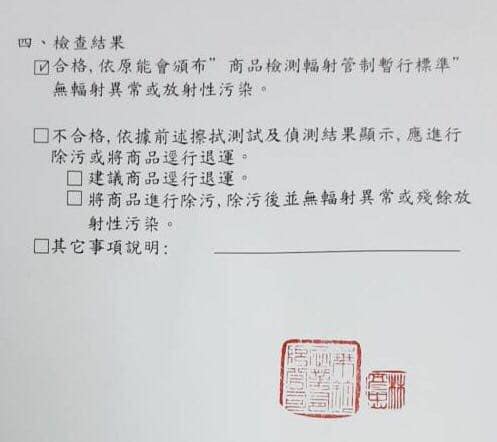 四、檢查結果
☑合格,依原能會頒布”商品檢測輻射管制暫行標準”
無輻射異常或放射性污染。
□不合格,依據前述擦拭測試及偵測結果顯示,應進行
除污或將商品逕行退運。
□建議商品逕行退運。
□將商品進行除污,除污後並無輻射異常或殘餘放
射性污染。
□其它事項說明: